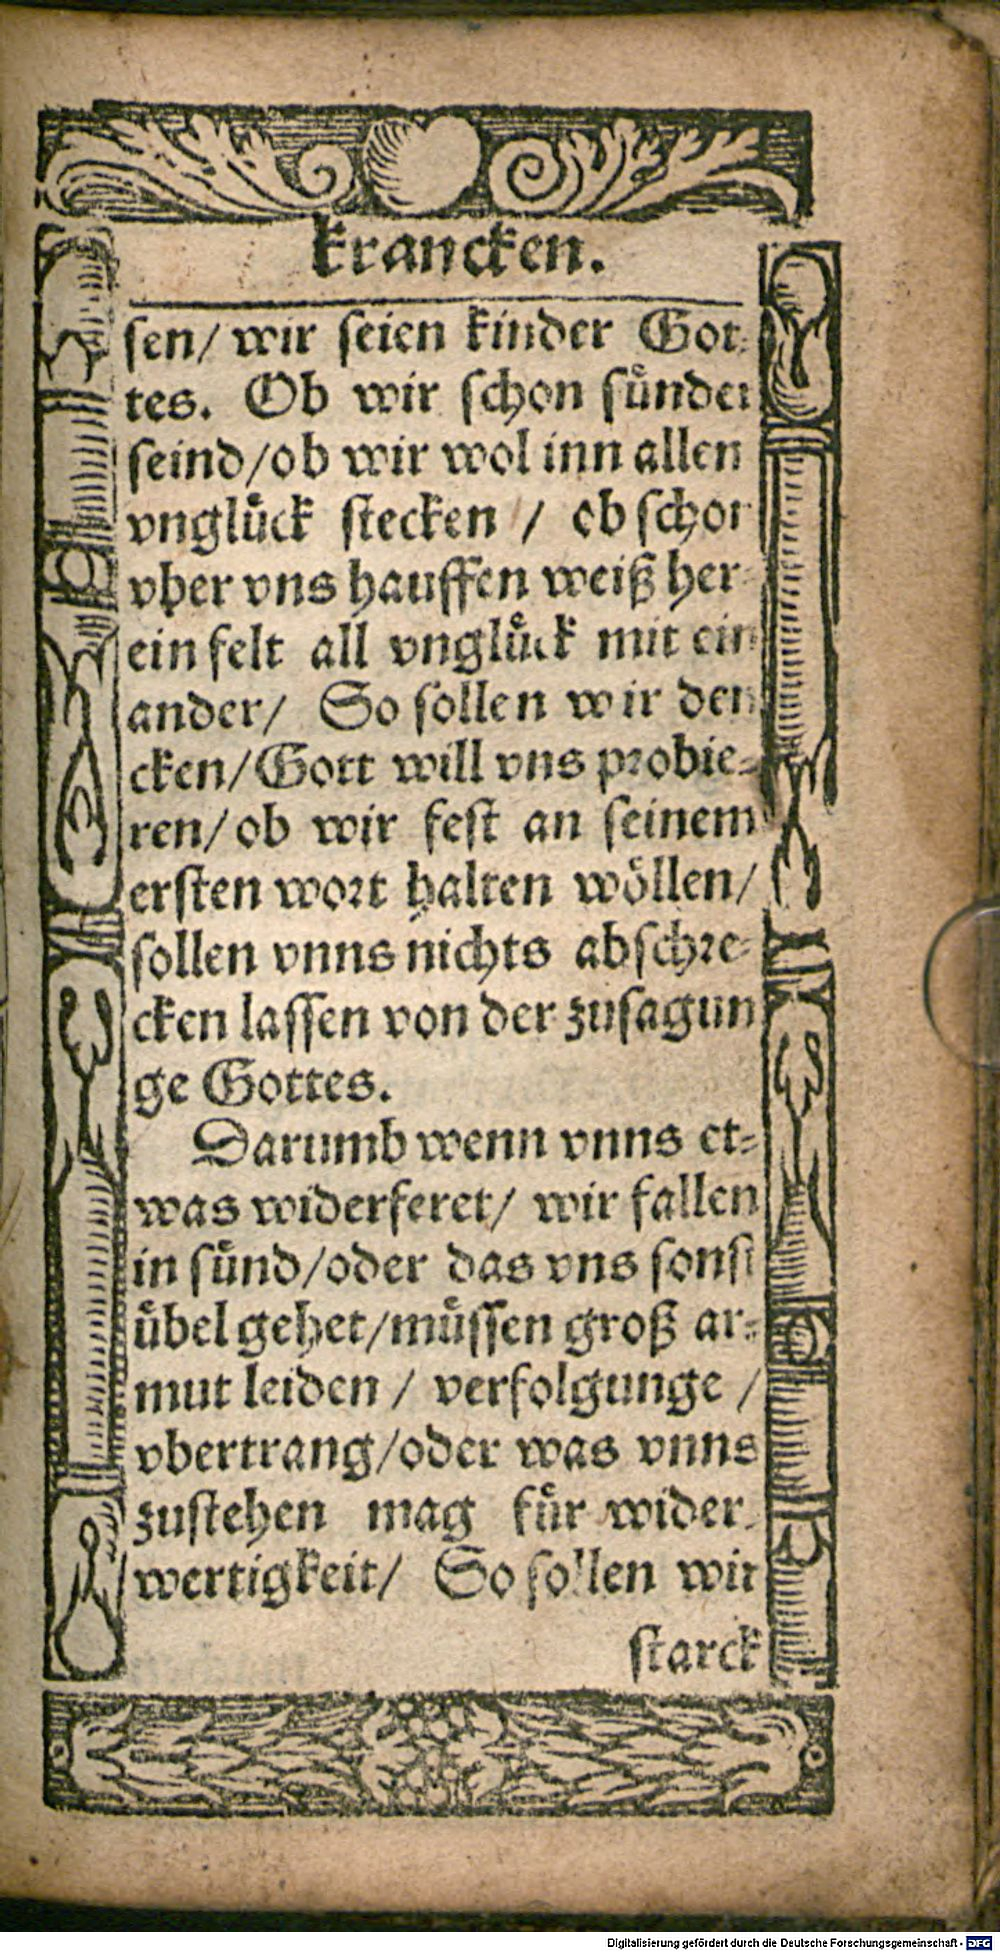 krancken.
sen/ wir seien kinder Got-
tes. Ob wir schon sünder
seind/ob wir wol inn allen
vnglück stecken / ob schon
vber vns hauffen weiß her-
ein felt all vnglück mit ein
ander/ So sollen wir den
cken/Gott will vns probie-
ren/ob wir fest an seinem
ersten wort halten wöllen/
sollen vnns nichts abschre-
cken lassen von der zusagun
ge Gottes.
Darumb wenn vnns et-
was widerferet/ wir fallen
in sünd/oder das vns sonst
übel gehet/müssen groß ar-
mut leiden / verfolgunge /
vbertrang/oder was vnns
zustehen mag für wider-
wertigkeit/ So sollen wir
starck
Digitalisierung gefördert durch die Deutsche Forschungsgemeinschaft - DFG